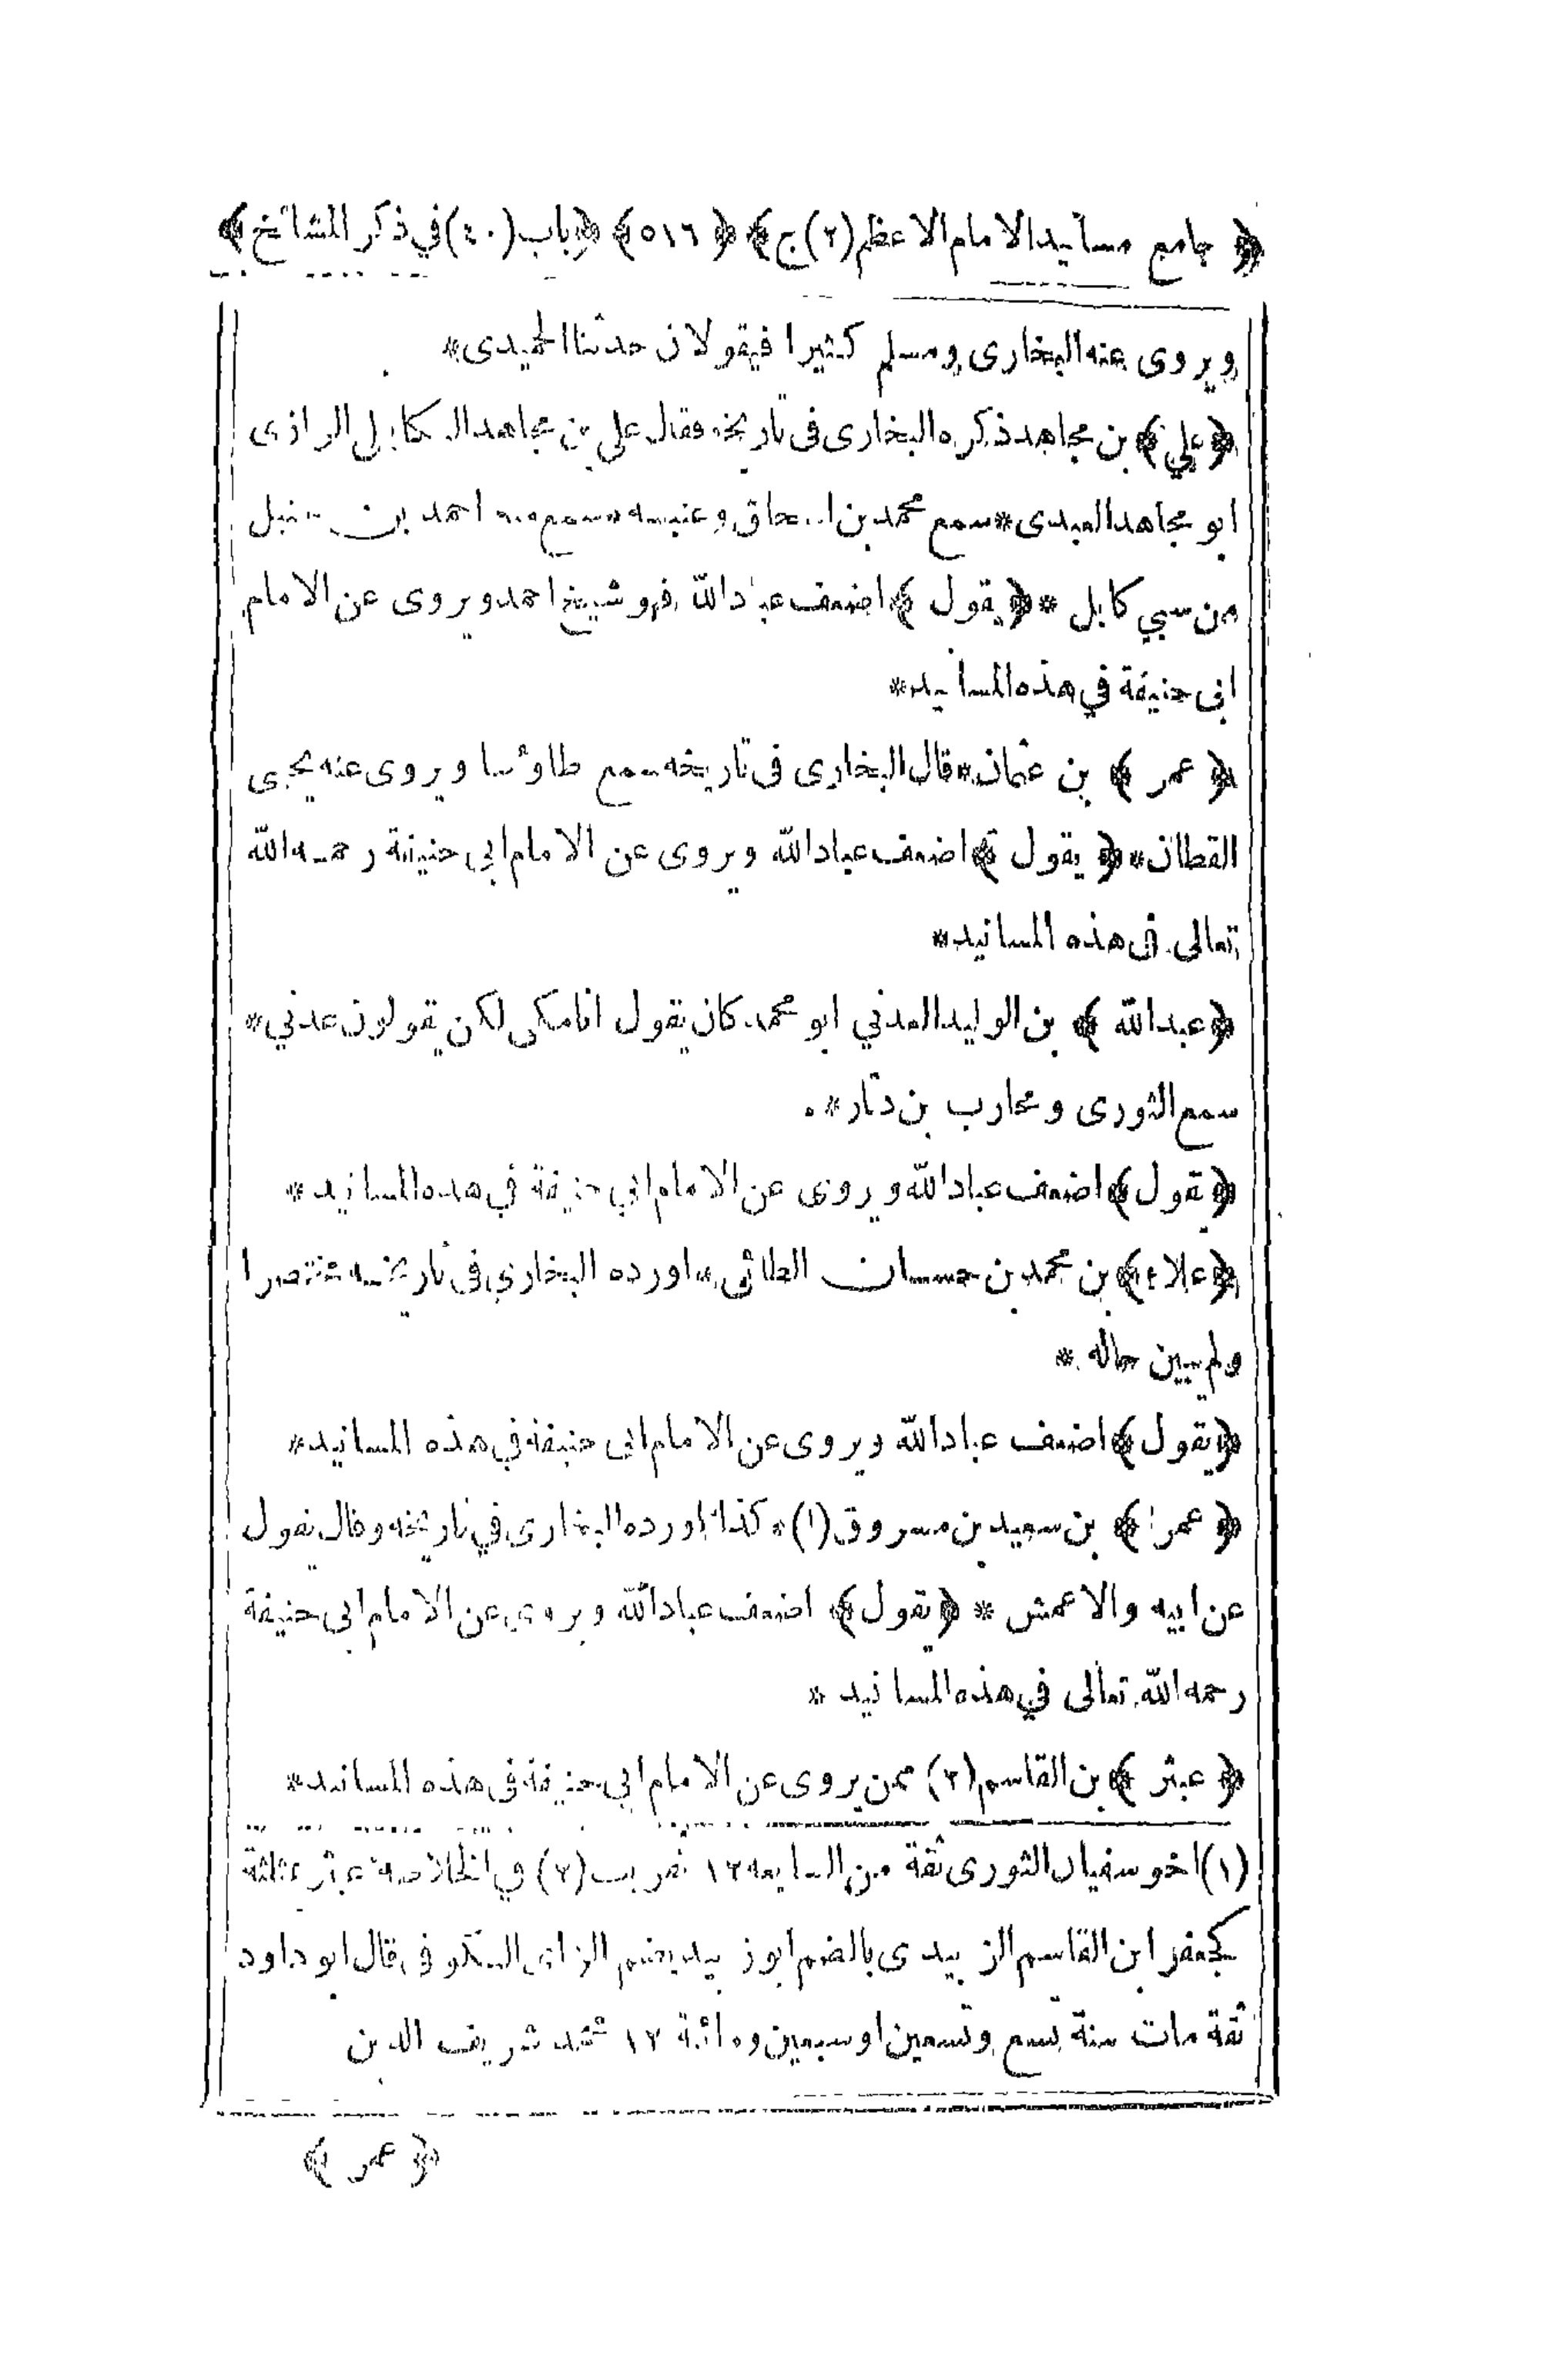 ﴿ جامع مسانيد الامام الاعظم (٢) ج ﴾ ﴿ ٥١٦ ﴾ ﴿ باب (٤٠) في ذكر المشائخ ﴾
ويروى عنه البخارى ومسلم كثيرا فيقولان حدثنا الحميدى *
﴿ علي ﴾ بن مجاهد ذكره البخارى فى تاريخه فقال على بن مجاهد الكابلى الرازى
ابو مجاهد العبدى * سمع محمد بن اسحاق وعنبسه * سمع منه احمد بن حنبل
من سبي كابل * ﴿ يقول ﴾ اضعف عباد الله فهو شيخ احمد ويروى عن الامام
ابى حنيفة في هذه المسانيد *
﴿ عمر ﴾ بن عثمان * قال البخارى فى تاريخه سمع طاوسا ويروى عنه يحيى
القطان * ﴿ يقول ﴾ اضعف عباد الله ويروى عن الامام ابى حنيفة رحمه الله
تعالى فى هذه المسانيد *
﴿ عبد الله ﴾ بن الوليد العدني ابو محمد كان يقول انا مكى لكن يقولون عدني *
سمع الثورى ومحارب بن دثار *
﴿ يقول ﴾ اضعف عباد الله ويروى عن الامام ابي حنيفة في هذه المسانيد *
﴿ علاء ﴾ بن محمد بن حسان الطائى * اورده البخاري فى تاريخه مختصرا
ولم يبين حاله *
﴿ يقول ﴾ اضعف عباد الله ويروى عن الامام ابى حنيفة في هذه المسانيد *
﴿ عمر ﴾ بن سعيد بن مسروق (١) * كذا اورده البخارى في تاريخه وقال يقول
عن ابيه والاعمش * ﴿ يقول ﴾ اضعف عباد الله ويروى عن الامام ابى حنيفة
رحمه الله تعالى في هذه المسانيد *
﴿ عبثر ﴾ بن القاسم (٢) ممن يروى عن الامام ابي حنيفة فى هذه المسانيد *
(١) اخو سفيان الثورى ثقة من السابعه ١٢ تقريب (٢) في الخلاصة عبثر بمثلثة
كجعفر ابن القاسم الزبيدى بالضم ابو زبيد بضم الزاى الكوفى قال ابو داود
ثقة مات سنة تسع وتسعين او سبعين ومائة ١٢ محمد شريف الدين
﴿ عمر ﴾